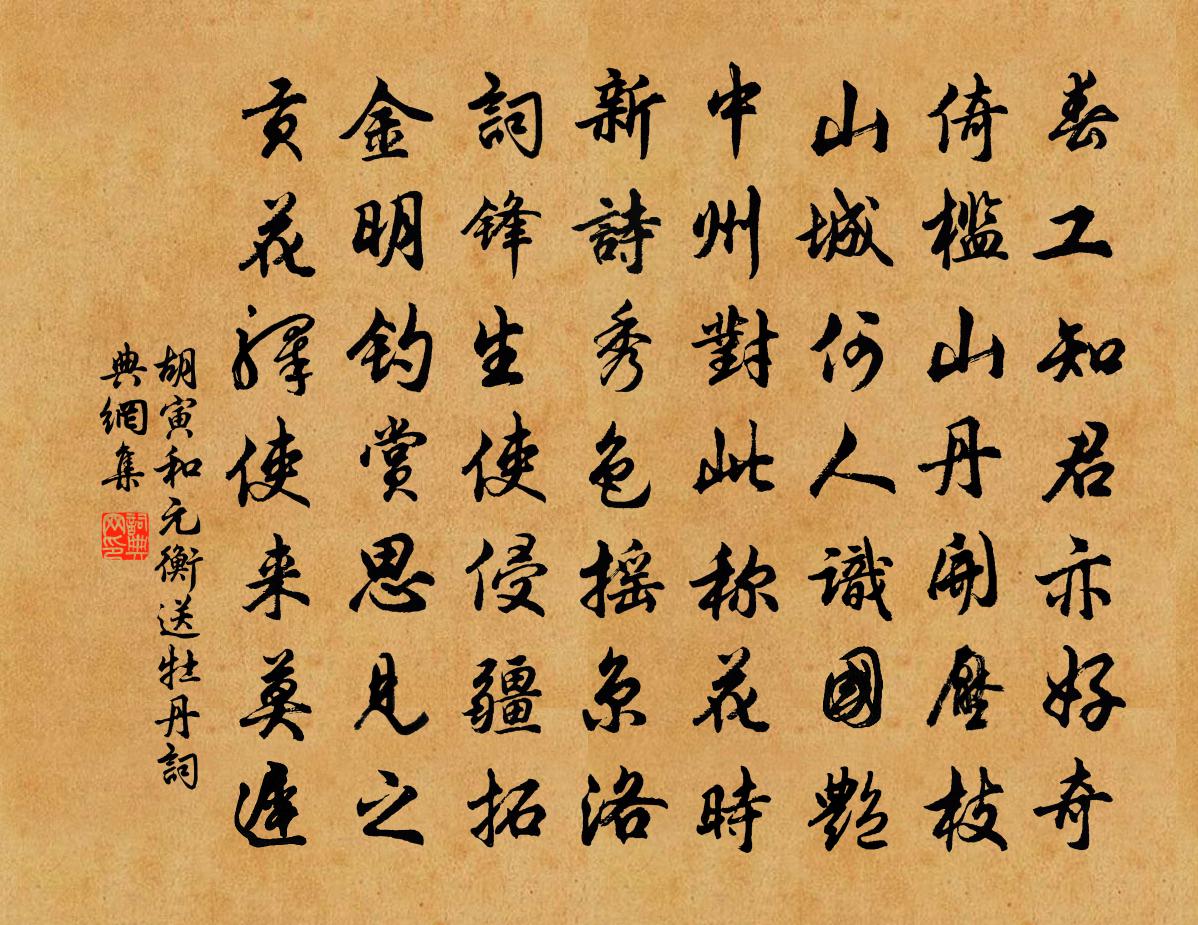 春工知君亦好奇
倚槛山丹開壓枝
山城何人識國艷
中州對此称花時
新詩秀色摇京洛
詞鋒生使侵疆拓
金明钓赏思見之
贡花驛使来莫遲
胡寅和元衡送牡丹詞
典網集
詞典网印